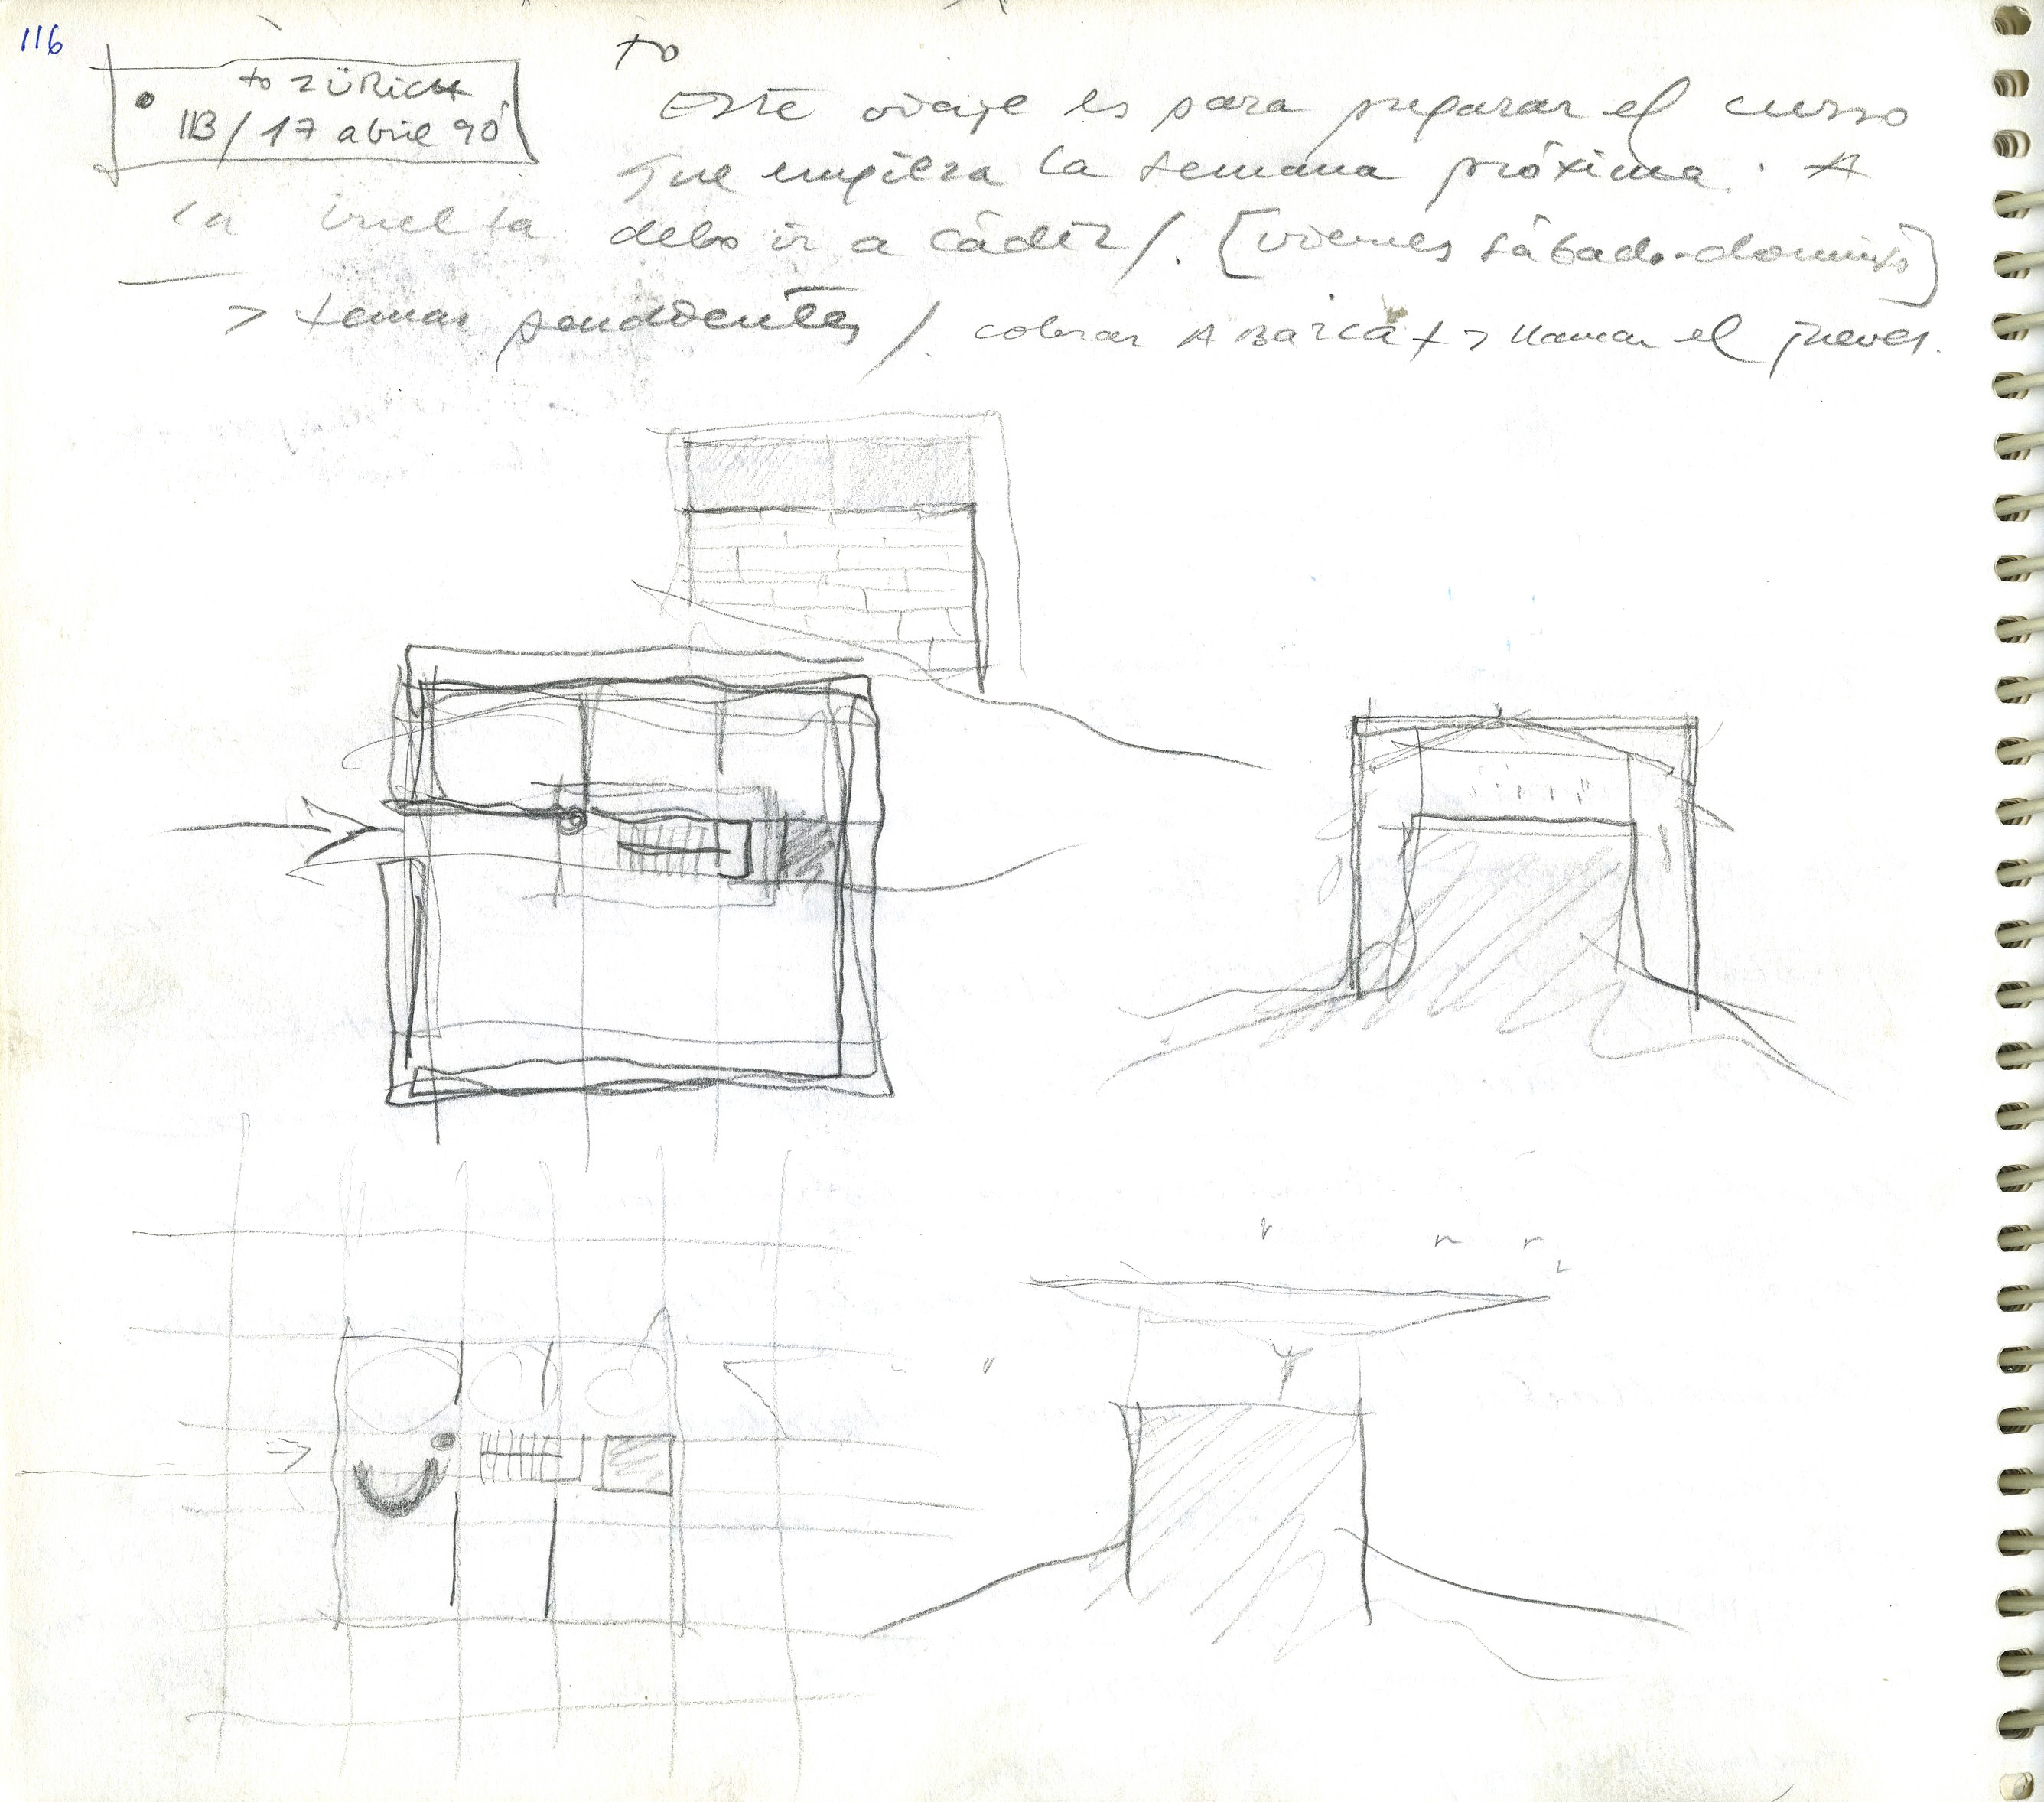 116
to ZÜRICH
IB / 17 abril 90
to
Este viaje es para preparar el curso
que empieza la semana próxima. A
la vuelta debo ir a Cádiz /. [viernes sábado-domingo]
> temas pendientes /. cobrar A BARCA + > llamar el jueves.